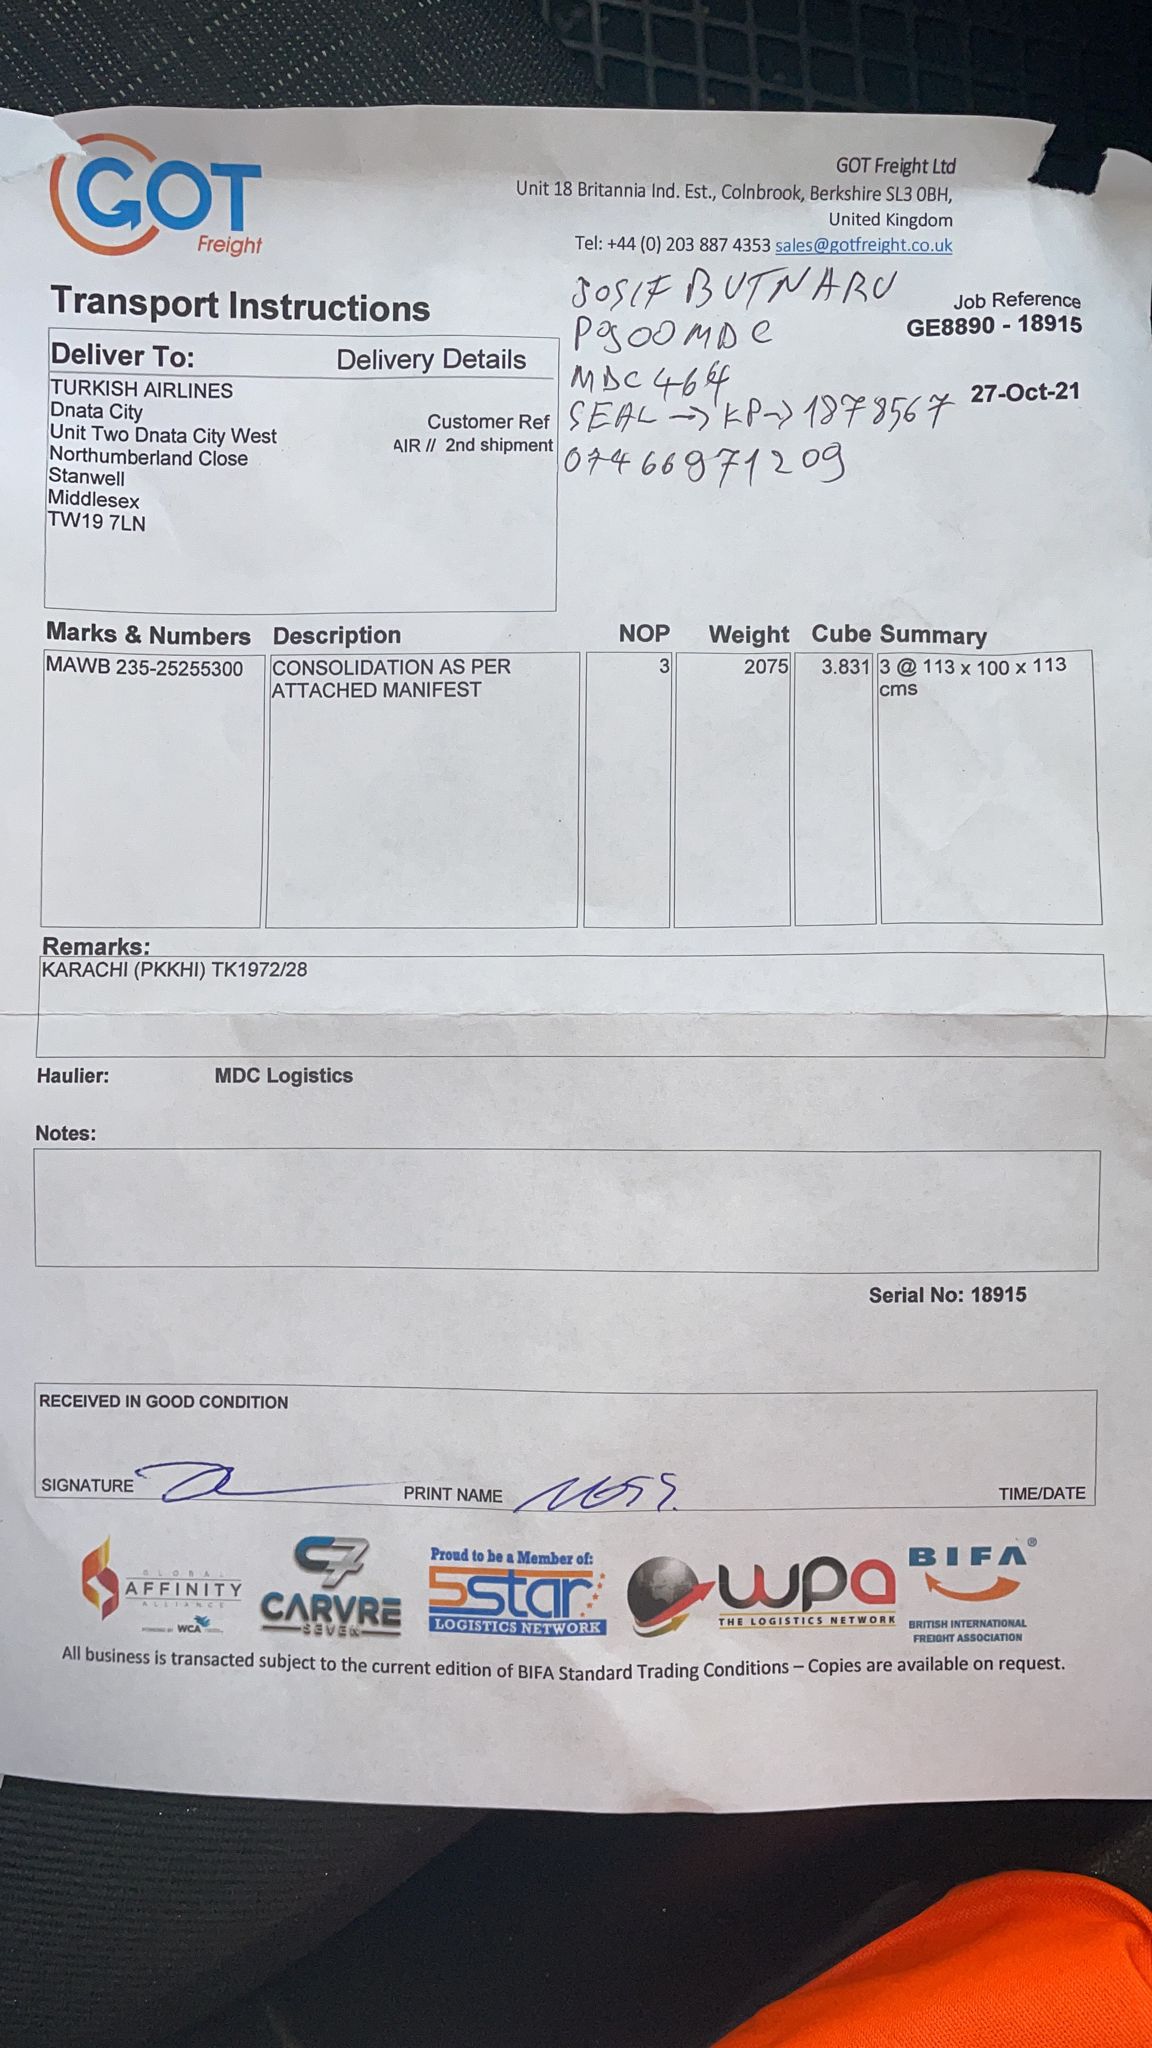 GOT
Freight
GOT Freight Ltd
Unit 18 Britannia Ind. Est., Colnbrook, Berkshire SL3 0BH,
United Kingdom
Tel: +44 (0) 203 887 4353 sales@gotfreight.co.uk
Transport Instructions
JOSIF BUTNARU
P900MDC
MDC 464
SEAL → KP → 1878567
07466971209
Job Reference
GE8890 - 18915
27-Oct-21
Deliver To: Delivery Details
TURKISH AIRLINES
Dnata City
Unit Two Dnata City West
Northumberland Close
Stanwell
Middlesex
TW19 7LN
Customer Ref
AIR // 2nd shipment
Marks & Numbers Description NOP Weight Cube Summary
MAWB 235-25255300 CONSOLIDATION AS PER 3 2075 3.831 3 @ 113 x 100 x 113
ATTACHED MANIFEST cms
Remarks:
KARACHI (PKKHI) TK1972/28
Haulier: MDC Logistics
Notes:
Serial No: 18915
RECEIVED IN GOOD CONDITION
SIGNATURE PRINT NAME TIME/DATE
GLOBAL
AFFINITY
ALLIANCE
POWERED BY WCA
C7
CARVRE
SEVEN
Proud to be a Member of:
5star
LOGISTICS NETWORK
wpa
THE LOGISTICS NETWORK
BIFA®
BRITISH INTERNATIONAL
FREIGHT ASSOCIATION
All business is transacted subject to the current edition of BIFA Standard Trading Conditions – Copies are available on request.